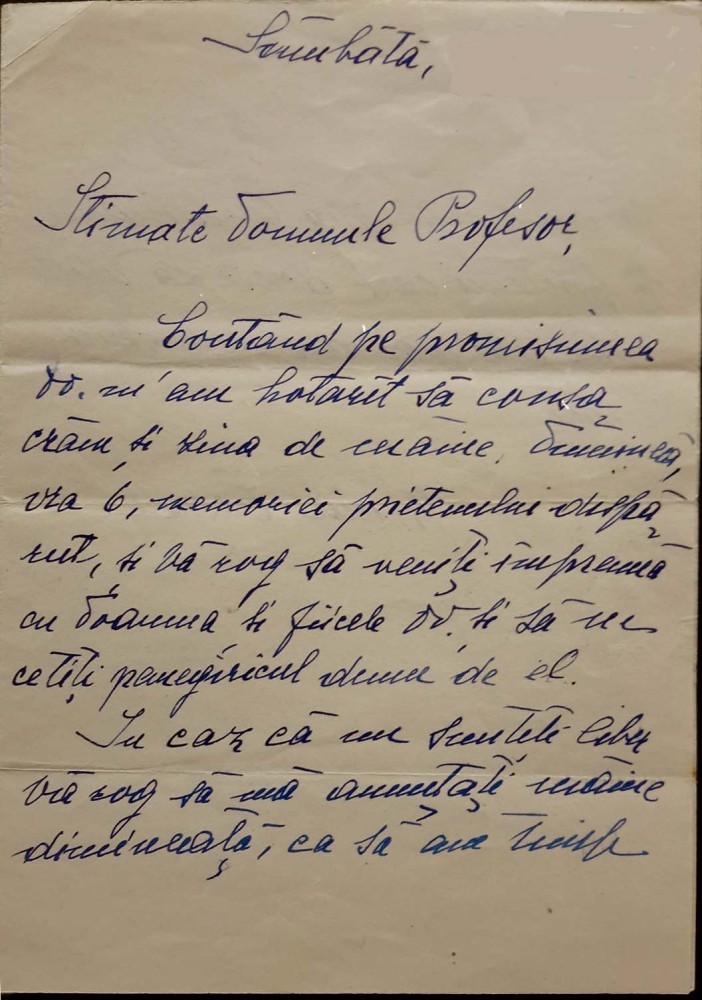 Sâmbătă,
Stimate Domnule Profesor,
Contând pe promisiunea
Dv. m'am hotarît să consa
crăm si ziua de mâine, Duminecă,
ora 6, memoriei prietenului dispă
rut, și vă rog să veniți împreună
cu Doamna și fiicele Dv. si să ne
cetiți panegiricul demn de el.
In caz că nu sunteti liber
vă rog să mă anunțați mâine
dimineață, ca să am timp